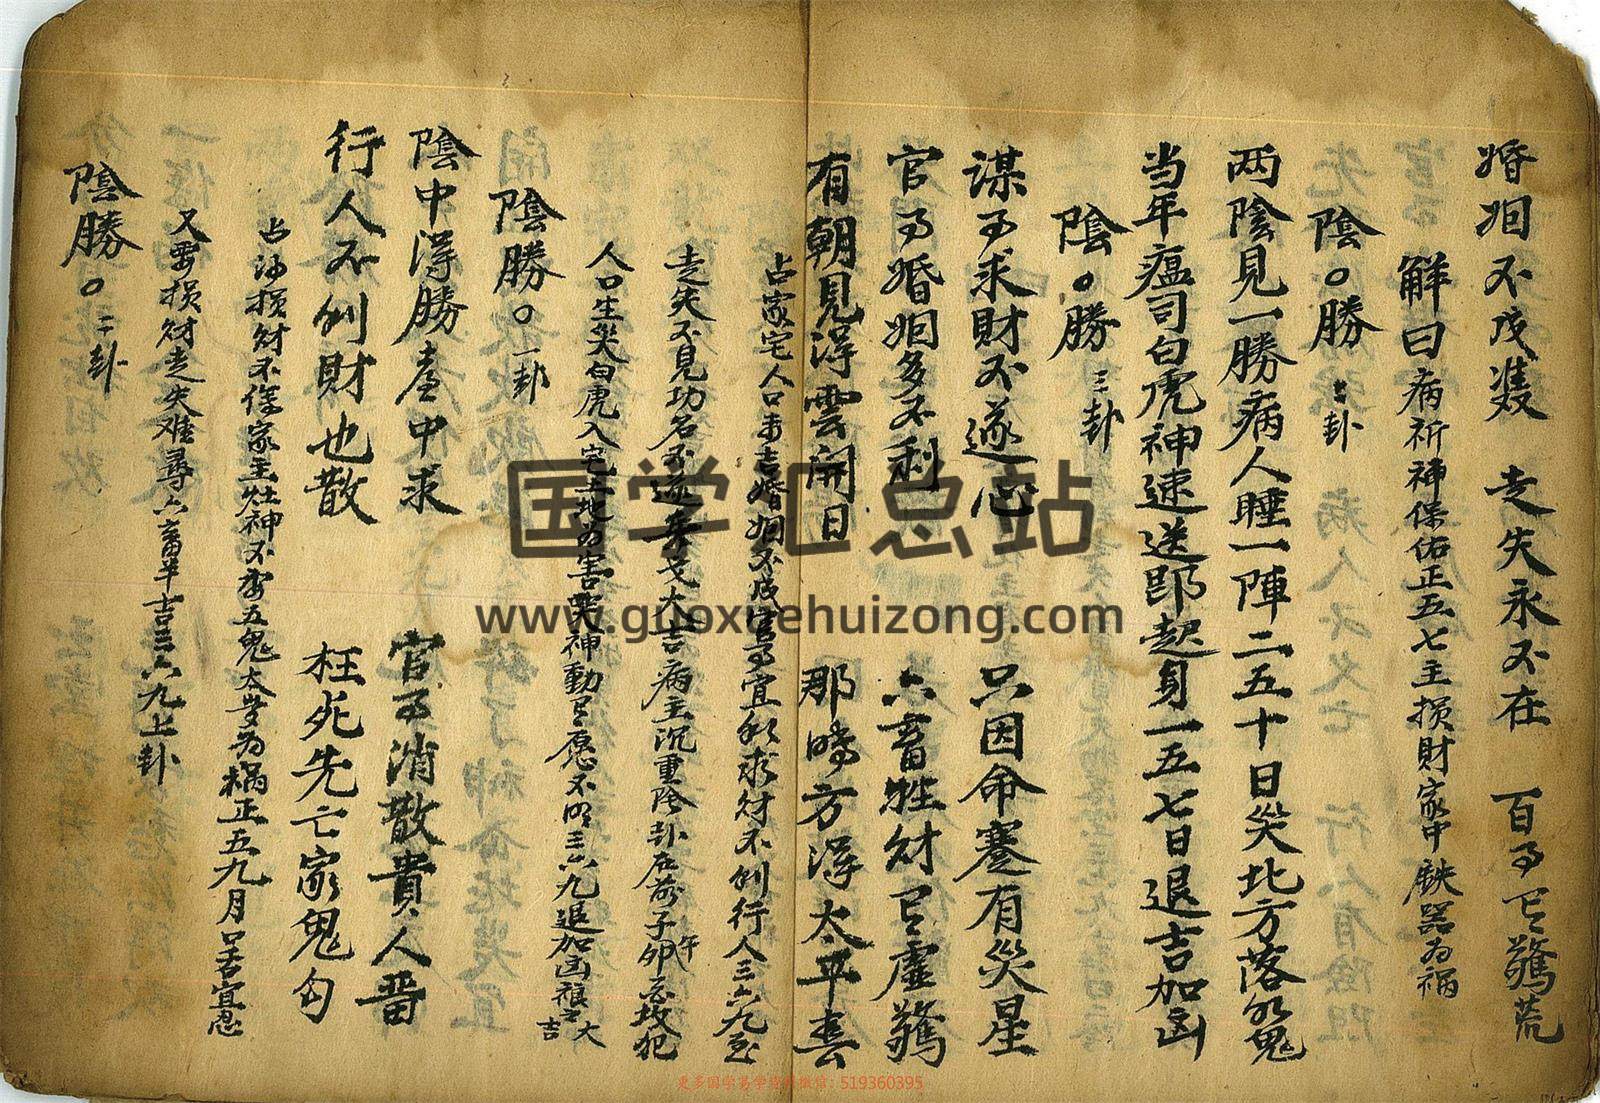 婚姻不成雙 走失永不在 百事巳驚荒
解曰病祈神保佑正五七主损財家中鉄器为祸
陰〇勝 卦
两陰見一勝病人睡一陣二五十日災北方落水鬼
当年瘟司白虎神速送即起身一五七日退吉加凶
陰〇勝 三卦
谋事求財不遂心 只因命蹇有災星
官事婚姻多不利 六畜牲财巳虚驚
有朝見得雲開日 那時方得太平春
占家宅人口未吉婚姻不成官事宜和求财不利行人三六九至
走失不見功名不遂 大吉病主沉重陰卦在前子午卯 攻犯
人口生災白虎入宅土地为害哭神動 愿不明三六九退加凶禳之大吉
陰勝〇一卦
陰中得勝 中求 官事消散貴人
行人不利財也散 枉死先亡家鬼勾
占 损財不保家主灶神不安五鬼太岁为祸正五九月 宜忍
又要损财走失难尋六畜平吉三六九上卦
陰勝〇二卦
国学汇总站
www.guoxuehuizong.com
更多国学易学资料微信:519360395